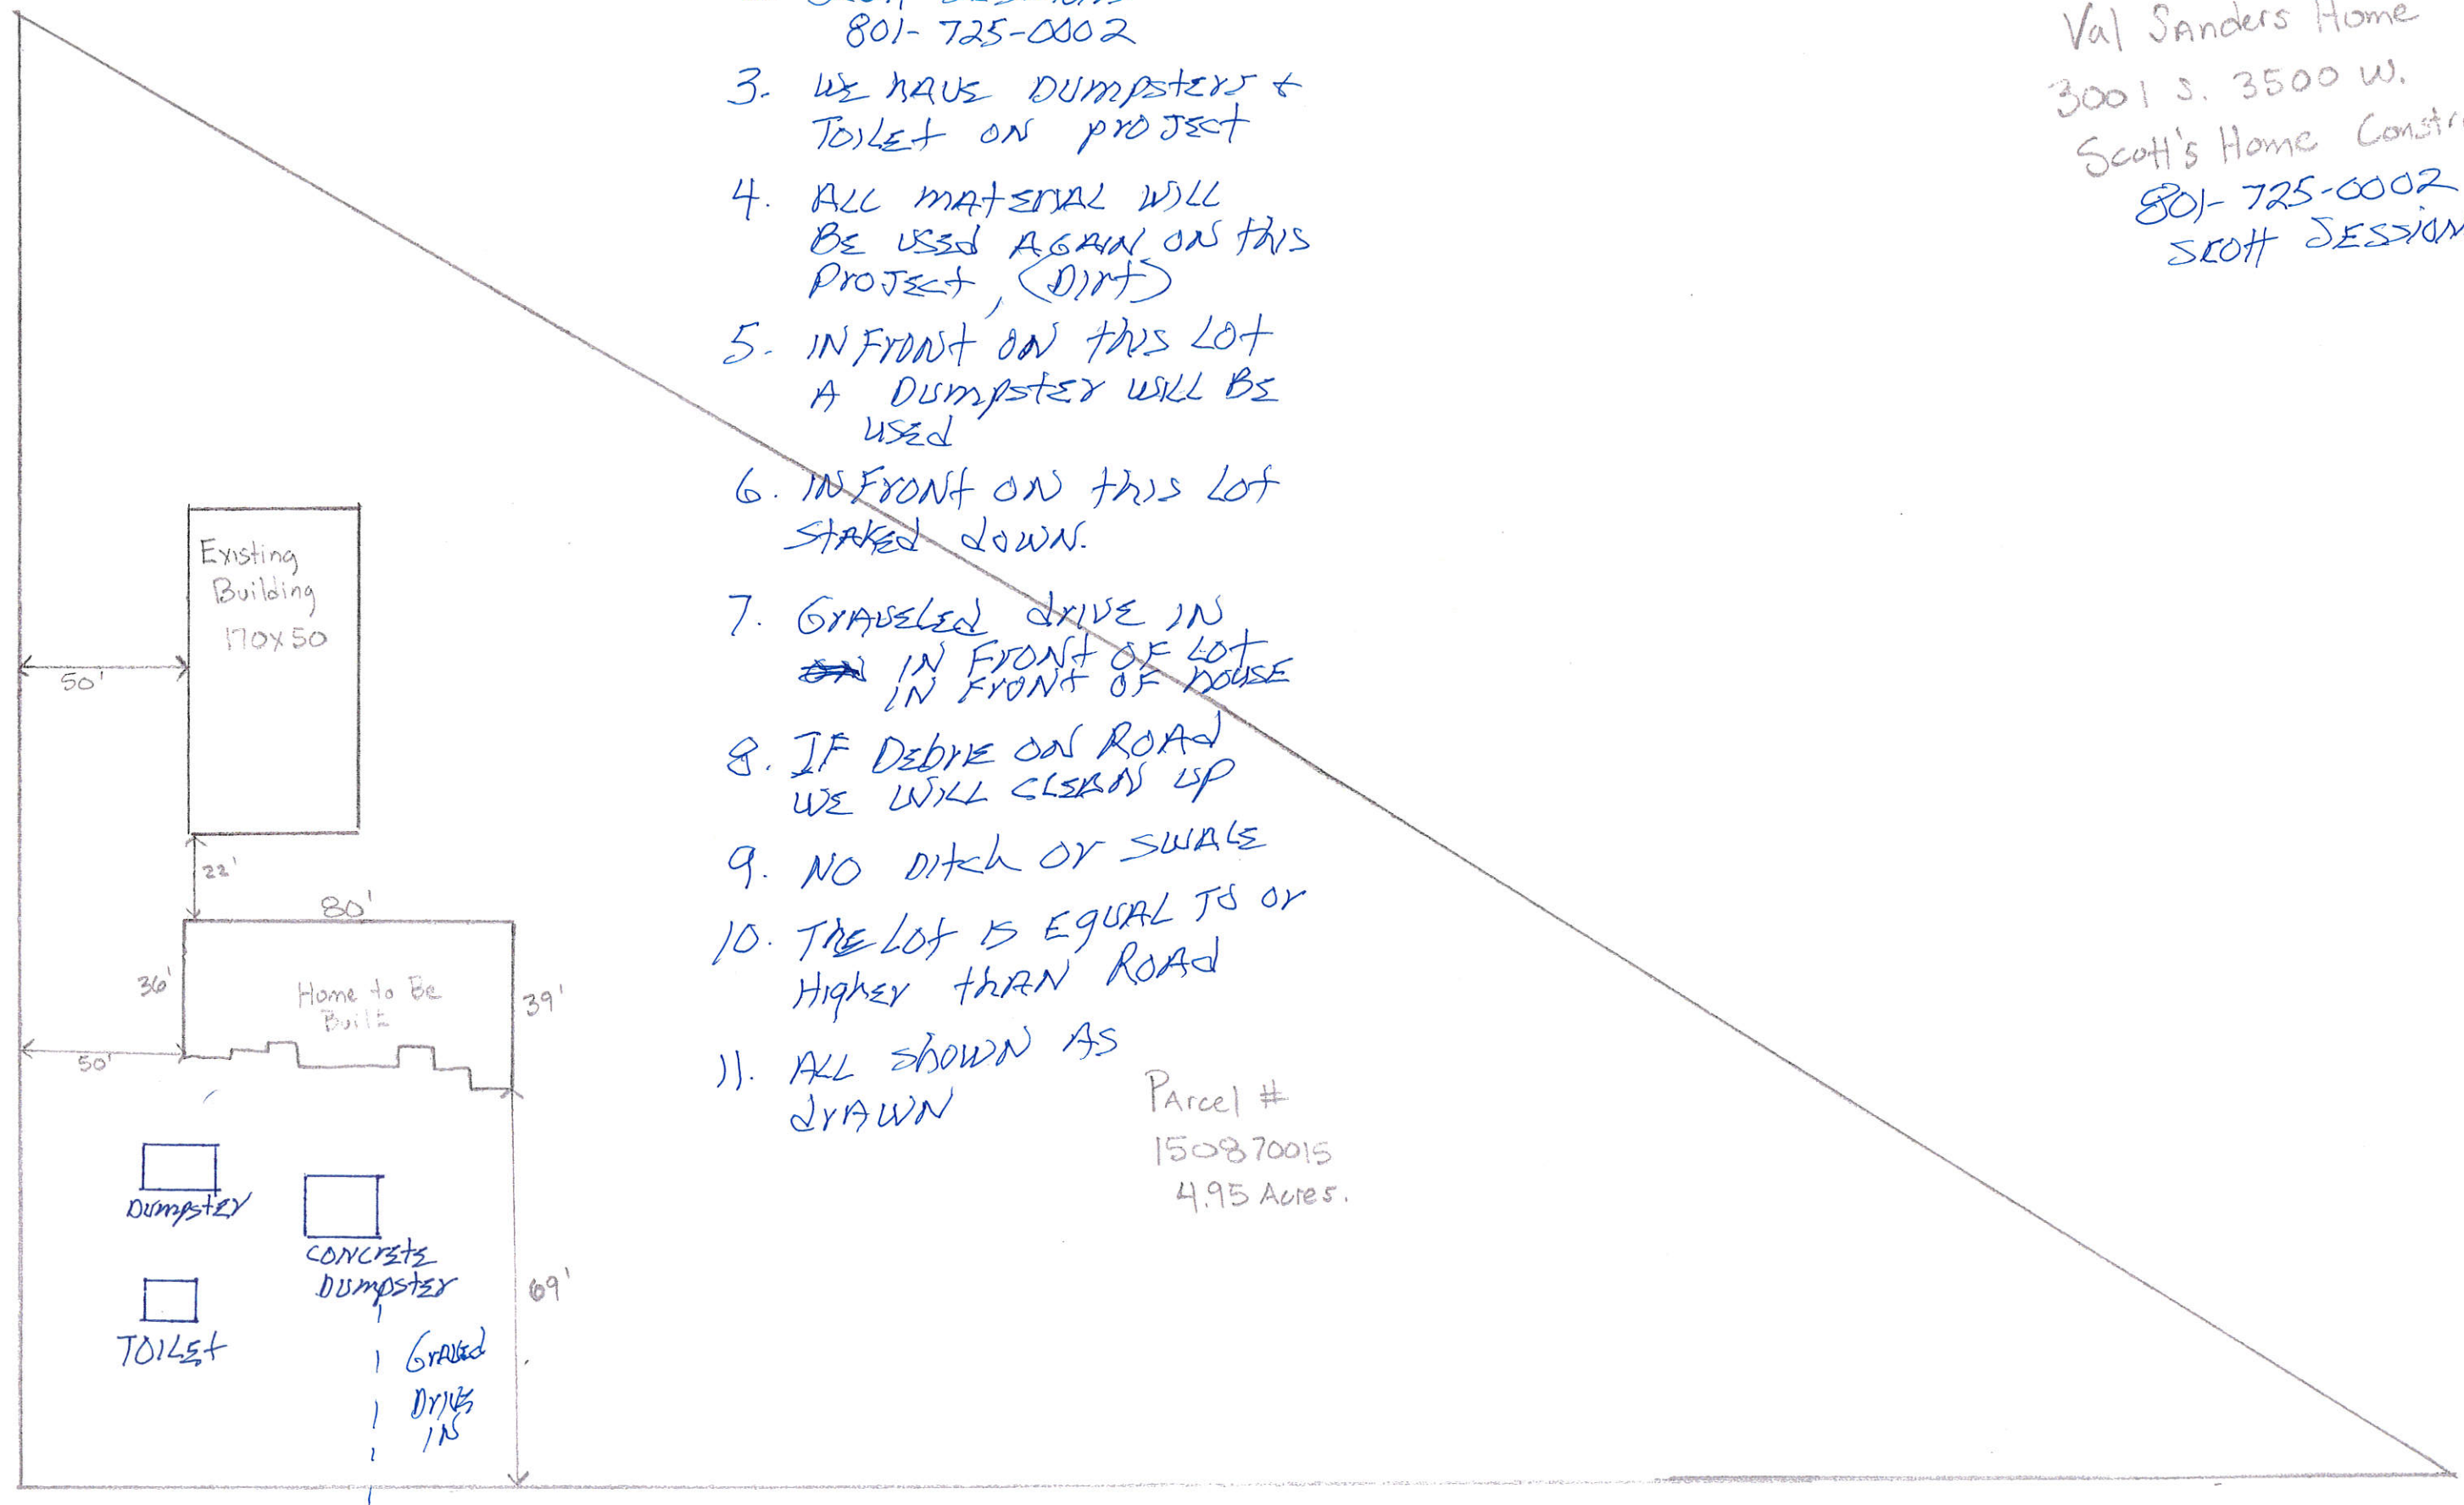 801-725-0002
3. WE HAVE DUMPSTERS &
TOILET ON PROJECT
4. ALL MATERIAL WILL
BE USED AGAIN ON this
PROJECT, (DIRT)
5. IN FRONT ON this LOT
A DUMPSTER WILL BE
USED
6. IN FRONT ON this LOT
STAKED DOWN.
7. GRAVELED DRIVE IN
IN FRONT OF LOT
IN FRONT OF HOUSE
8. IF DEBRIE ON ROAD
WE WILL CLEAN UP
9. NO DITCH OR SWALE
10. THE LOT IS EQUAL TO OR
HIGHER THAN ROAD
11. ALL SHOWN AS
DRAWN
Val Sanders Home
3001 S. 3500 W.
Scott's Home
801-725-0002
SCOTT
Existing
Building
170x50
50'
22'
80'
36'
Home to Be
Built
39'
50'
DUMPSTER
CONCRETE
DUMPSTER
TOILET
69'
DRIVE
IN
Parcel #
150870015
4.95 Acres.